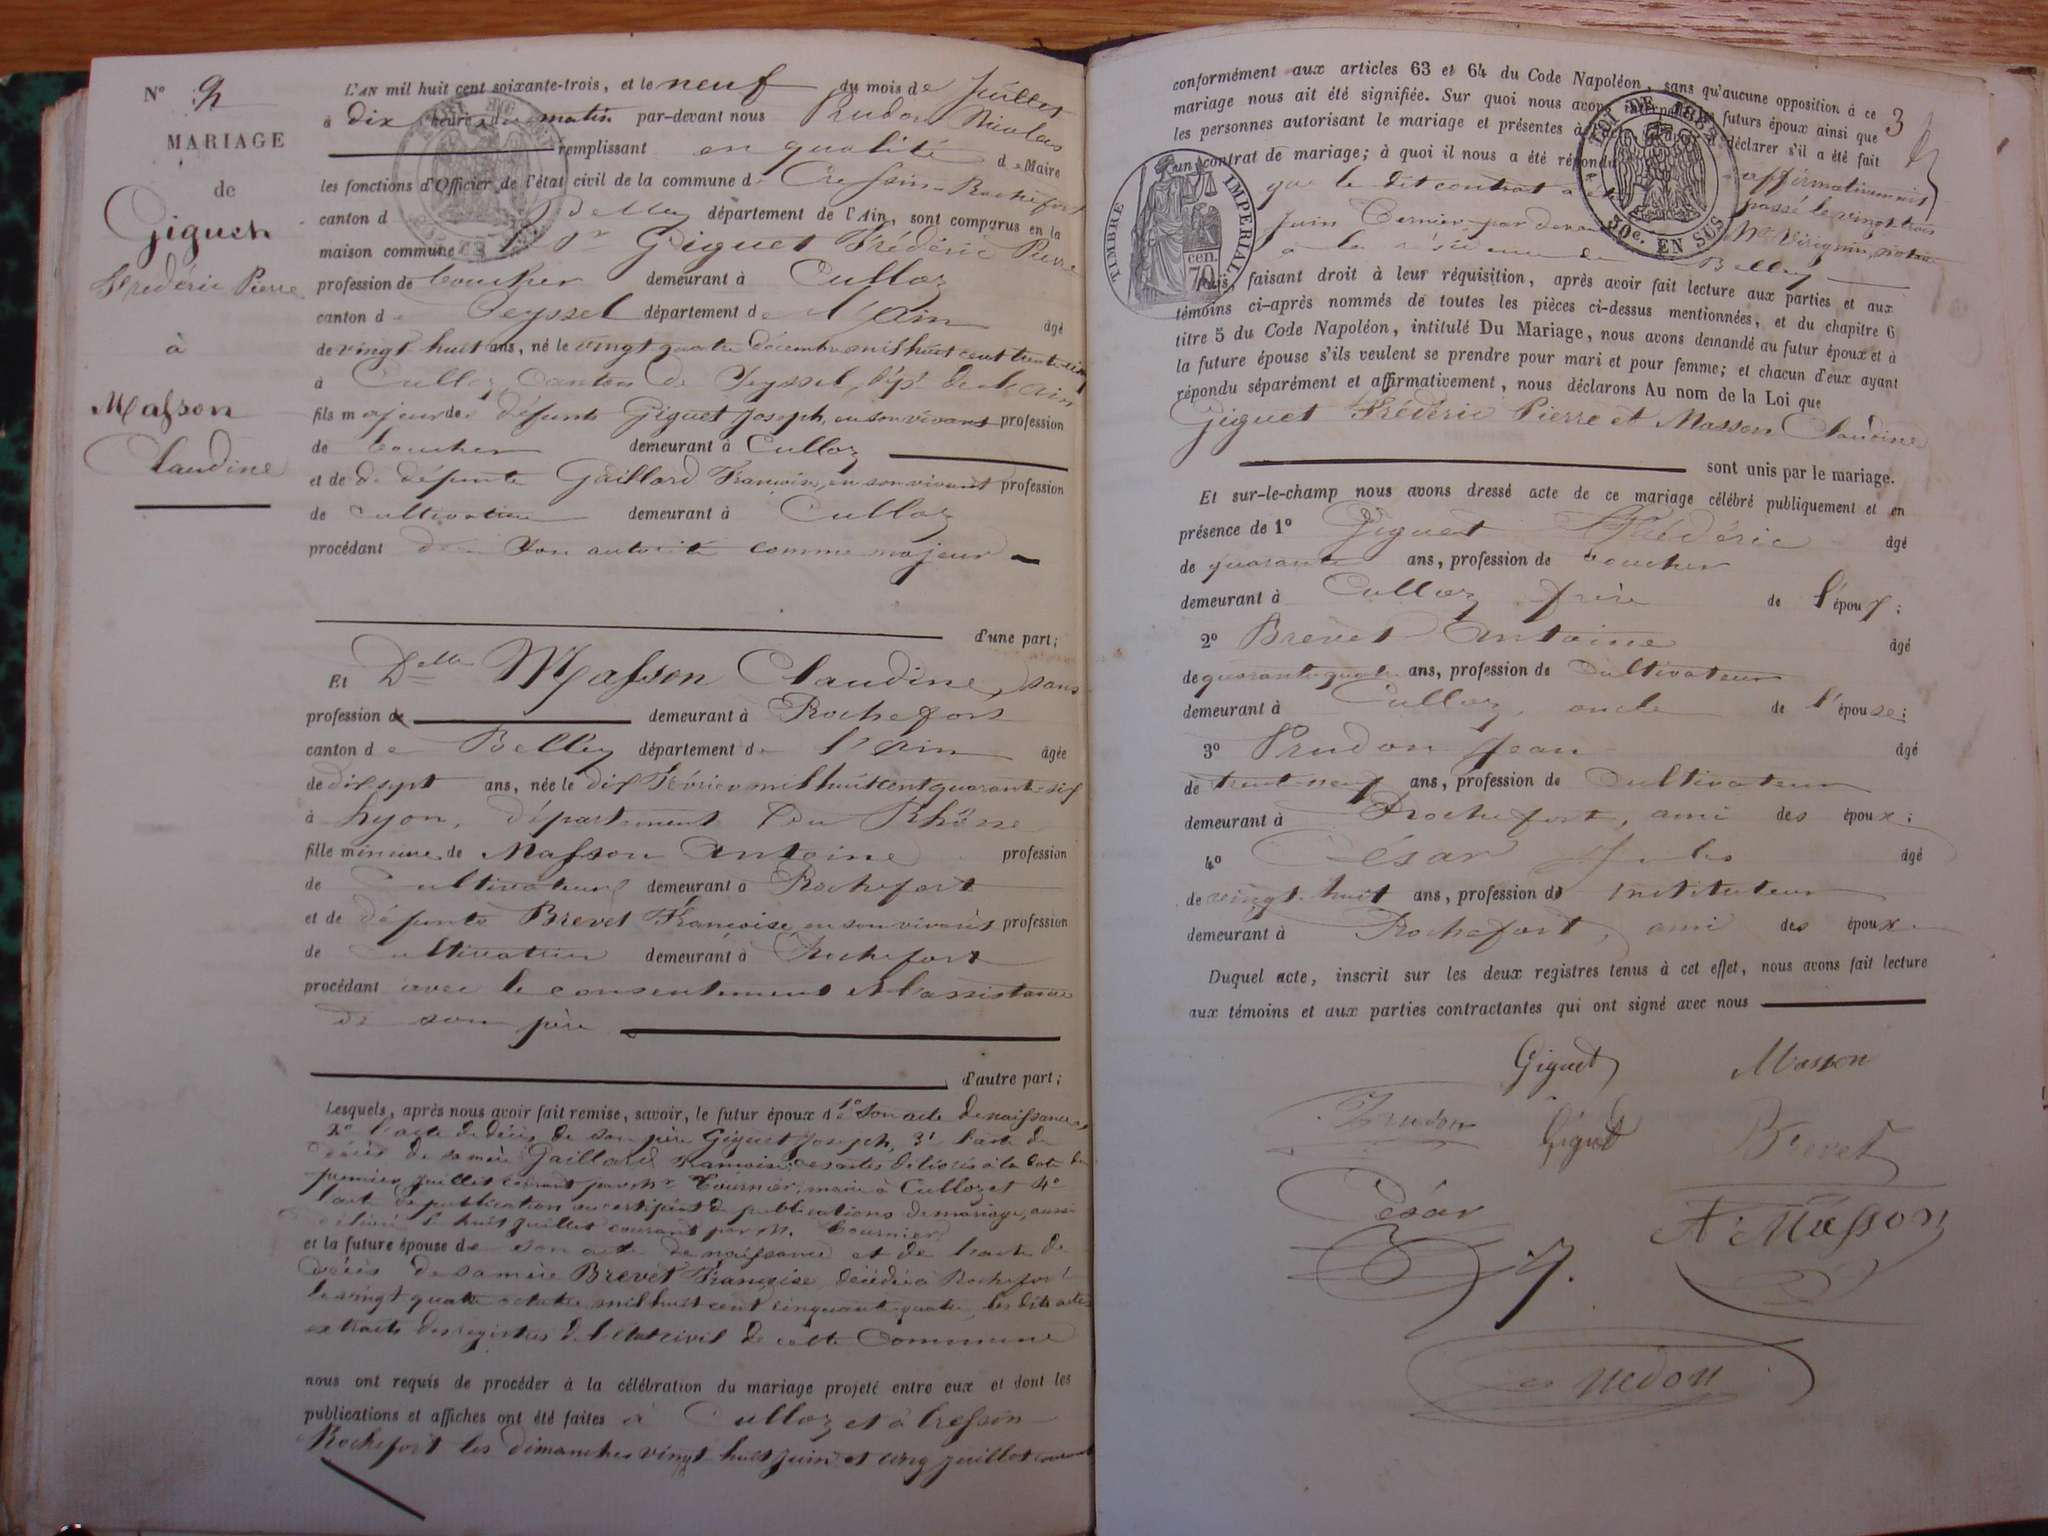 N° 2
MARIAGE
de
Giguet
Frédéric Pierre
à
Masson
Claudine
L'AN mil huit cent soixante-trois, et le neuf du mois de Juillet
à dix heures du matin par-devant nous Prudon Nicolas
remplissant en qualité de Maire
les fonctions d'Officier de l'état civil de la commune de Cressin-Rochefort
canton d Belley département de l'Ain, sont comparus en la
maison commune Sr Giguet Frédéric Pierre
profession de boucher demeurant à Culloz
canton de Seyssel département de l'Ain âgé
de vingt huit ans, né le vingt quatre décembre mil huit cent trente
à Culloz Canton de Seyssel, dépt de l'Ain
fils majeur de défunt Giguet Joseph, en son vivant profession
de boucher demeurant à Culloz
et de défunte Gaillard Françoise, en son vivant profession
de cultivatrice demeurant à Culloz
procédant de son autorité comme majeur
d'une part;
Et Delle Masson Claudine, sans
profession de demeurant à Rochefort
canton de Belley département de l'Ain âgée
de dix sept ans, née le dix Février mil huit cent quarante-six
à Lyon, département du Rhône
fille mineure de Masson Antoine profession
de cultivateur demeurant à Rochefort
et de défunte Brevet Françoise en son vivant profession
de cultivatrice demeurant à Rochefort
procédant avec le consentement et l'assistance
de son père
d'autre part;
Lesquels, après nous avoir fait remise, savoir, le futur époux de 1° Son acte de naissance
2° l'acte de décès de son père Giguet Joseph, 3° l'acte de
décès de sa mère Gaillard Françoise, ces actes délivrés à la date du
premier Juillet courant par Mr Tournier, maire à Culloz et 4°
l'acte de publication ou certificat de publications de mariage, aussi
délivré le huit Juillet courant par M. Tournier
et la future épouse de son acte de naissance et de l'acte de
décès de sa mère Brevet Françoise décédée à Rochefort
le vingt quatre octobre mil huit cent cinquante quatre, les dits actes
extraits des registres de l'état civil de cette Commune
nous ont requis de procéder à la célébration du mariage projeté entre eux et dont les
publications et affiches ont été faites à Culloz et à Cressin
Rochefort les dimanches vingt huit Juin et cinq Juillet courant
3
conformément aux articles 63 et 64 du Code Napoléon, sans qu'aucune opposition à ce
mariage nous ait été signifiée. Sur quoi nous avons interpellé les futurs époux ainsi que
les personnes autorisant le mariage et présentes à déclarer s'il a été fait
un contrat de mariage; à quoi il nous a été répondu affirmativement
que le dit contrat a été passé le vingt trois
Juin dernier par devant Me notaire
à la résidence de Belley
LOI DE 1862 30c. EN SUS
TIMBRE IMPERIAL cen. 70
Nous, faisant droit à leur réquisition, après avoir fait lecture aux parties et aux
témoins ci-après nommés de toutes les pièces ci-dessus mentionnées, et du chapitre 6
titre 5 du Code Napoléon, intitulé Du Mariage, nous avons demandé au futur époux et à
la future épouse s'ils veulent se prendre pour mari et pour femme; et chacun d'eux ayant
répondu séparément et affirmativement, nous déclarons Au nom de la Loi que
Giguet Frédéric Pierre et Masson Claudine
sont unis par le mariage.
Et sur-le-champ nous avons dressé acte de ce mariage célébré publiquement et en
présence de 1° Giguet Frédéric âgé
de quarante ans, profession de boucher
demeurant à Culloz frère de l'époux;
2° Brevet Antoine âgé
de quarante quatre ans, profession de Cultivateur
demeurant à Culloz, oncle de l'épouse;
3° Prudon Jean âgé
de trente neuf ans, profession de Cultivateur
demeurant à Rochefort, ami des époux;
4° César Jules âgé
de vingt-huit ans, profession de Instituteur
demeurant à Rochefort, ami des époux
Duquel acte, inscrit sur les deux registres tenus à cet effet, nous avons fait lecture
aux témoins et aux parties contractantes qui ont signé avec nous
Giguet Masson
Prudon Giguet Brevet
César A. Masson